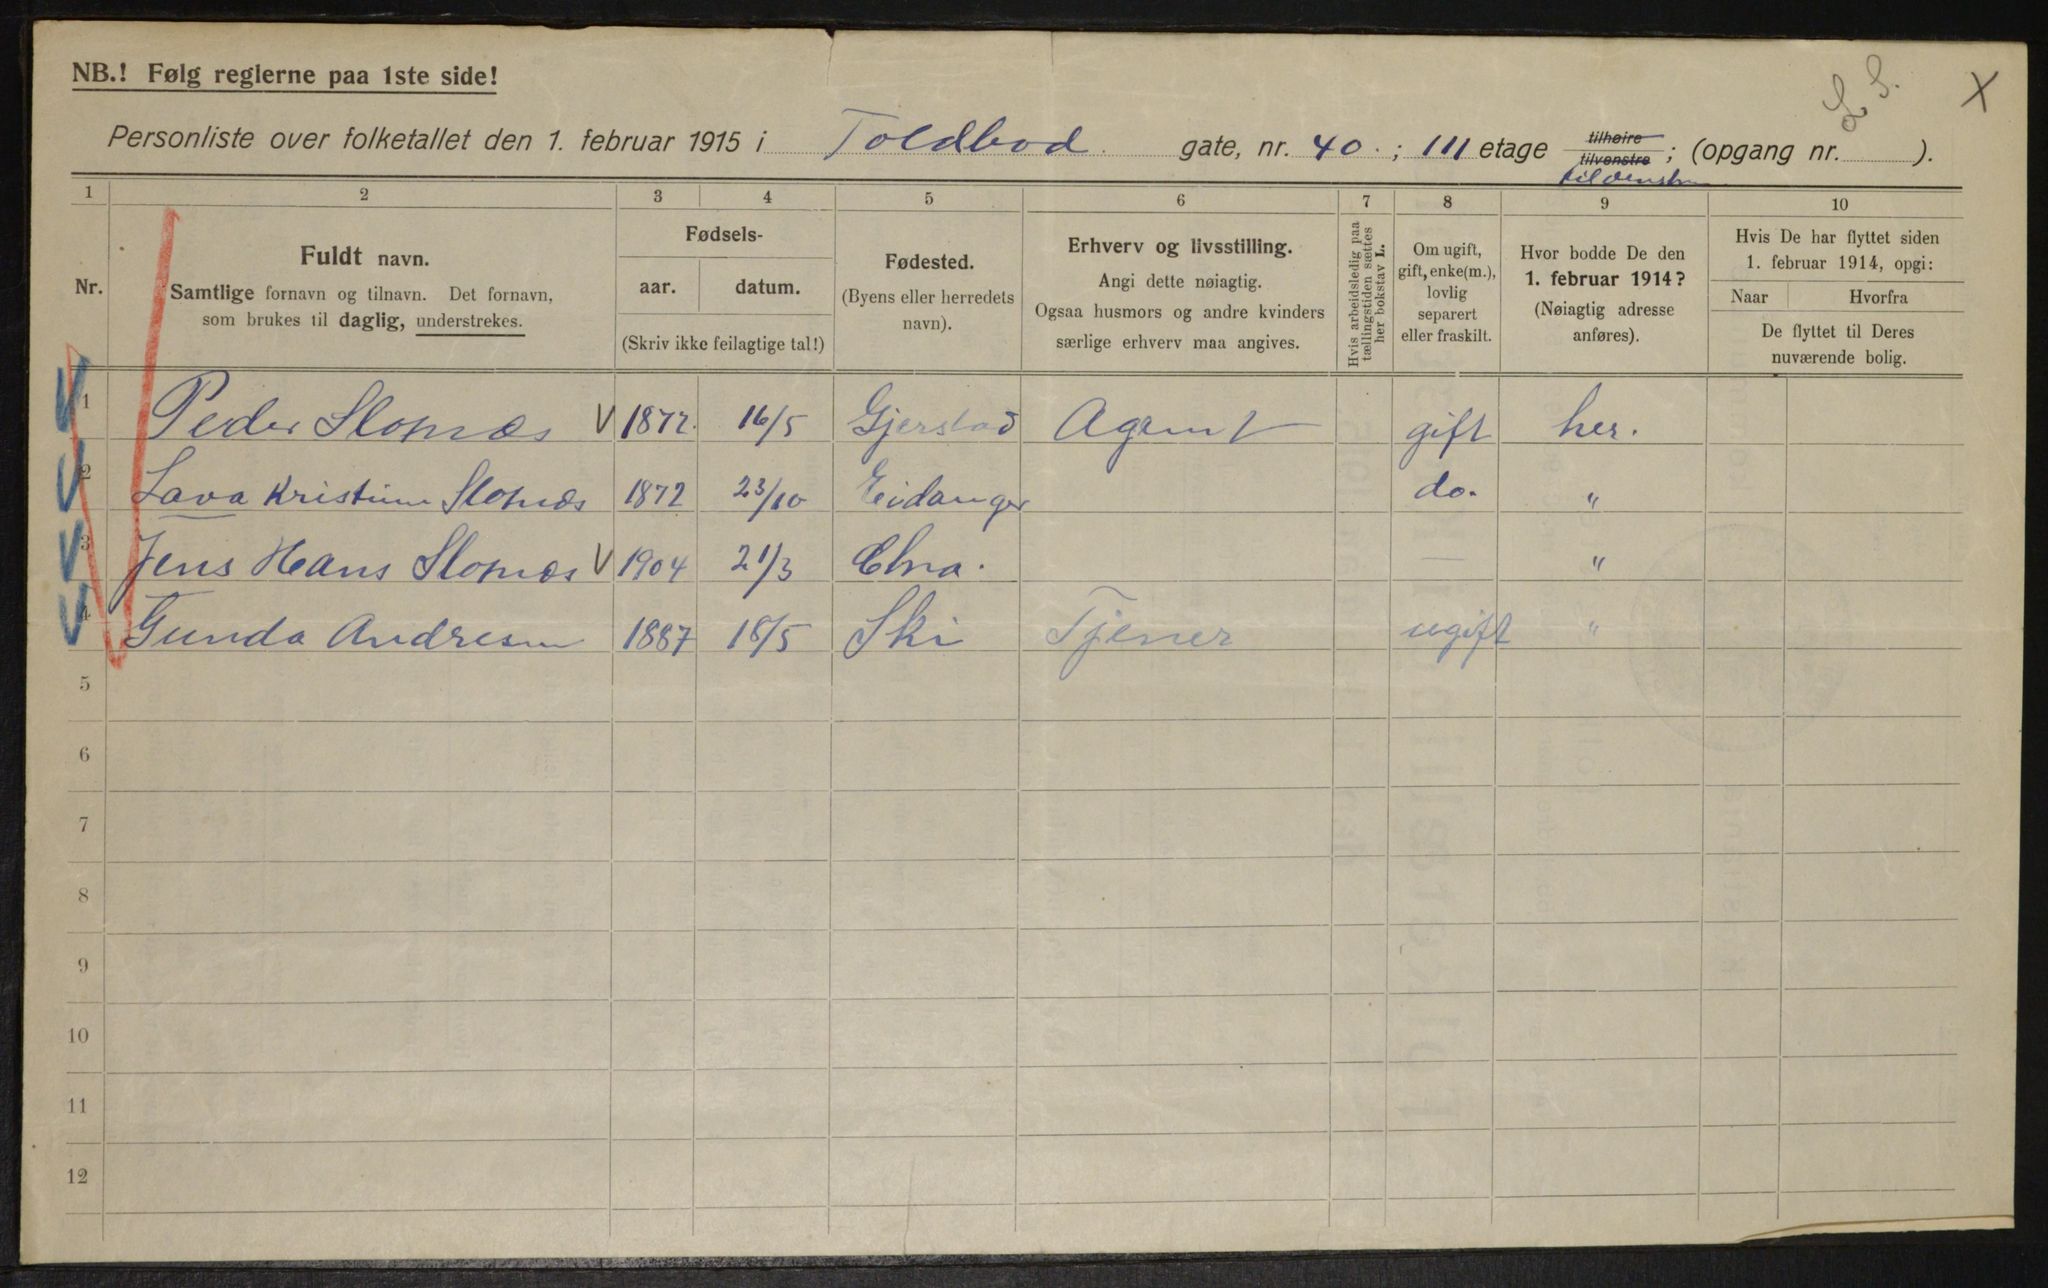 NB.! Følg reglerne paa 1ste side!
L. S. X
Personliste over folketallet den 1. februar 1915 i Toldbod gate, nr. 40. ; III etage tilhøire tilvenstre ; (opgang nr. ).
tilvenstre
1 2 3 4 5 6 7 8 9 10
Nr.
Fuldt navn.
Samtlige fornavn og tilnavn. Det fornavn,
som brukes til daglig, understrekes.
Fødsels-
aar. datum.
(Skriv ikke feilagtige tal!)
Fødested.
(Byens eller herredets
navn).
Erhverv og livsstilling.
Angi dette nøiagtig.
Ogsaa husmors og andre kvinders
særlige erhverv maa angives.
Hvis arbeidsledig paa
tællingstiden sættes
her bokstav L.
Om ugift,
gift, enke(m.),
lovlig
separert
eller fraskilt.
Hvor bodde De den
1. februar 1914?
(Nøiagtig adresse
anføres).
Hvis De har flyttet siden
1. februar 1914, opgi:
Naar Hvorfra
De flyttet til Deres
nuværende bolig.
1 Peder Slomæs V 1872. 16/5 Gjerstad Agent gift her.
2 Lava Kristine Slomæs 1872 23/10 Eidanger do. "
3 Jens Hans Slomæs V 1904 21/3 — "
4 Gunda Andresen 1887 18/5 Ski Tjener ugift "
5
6
7
8
9
10
11
12